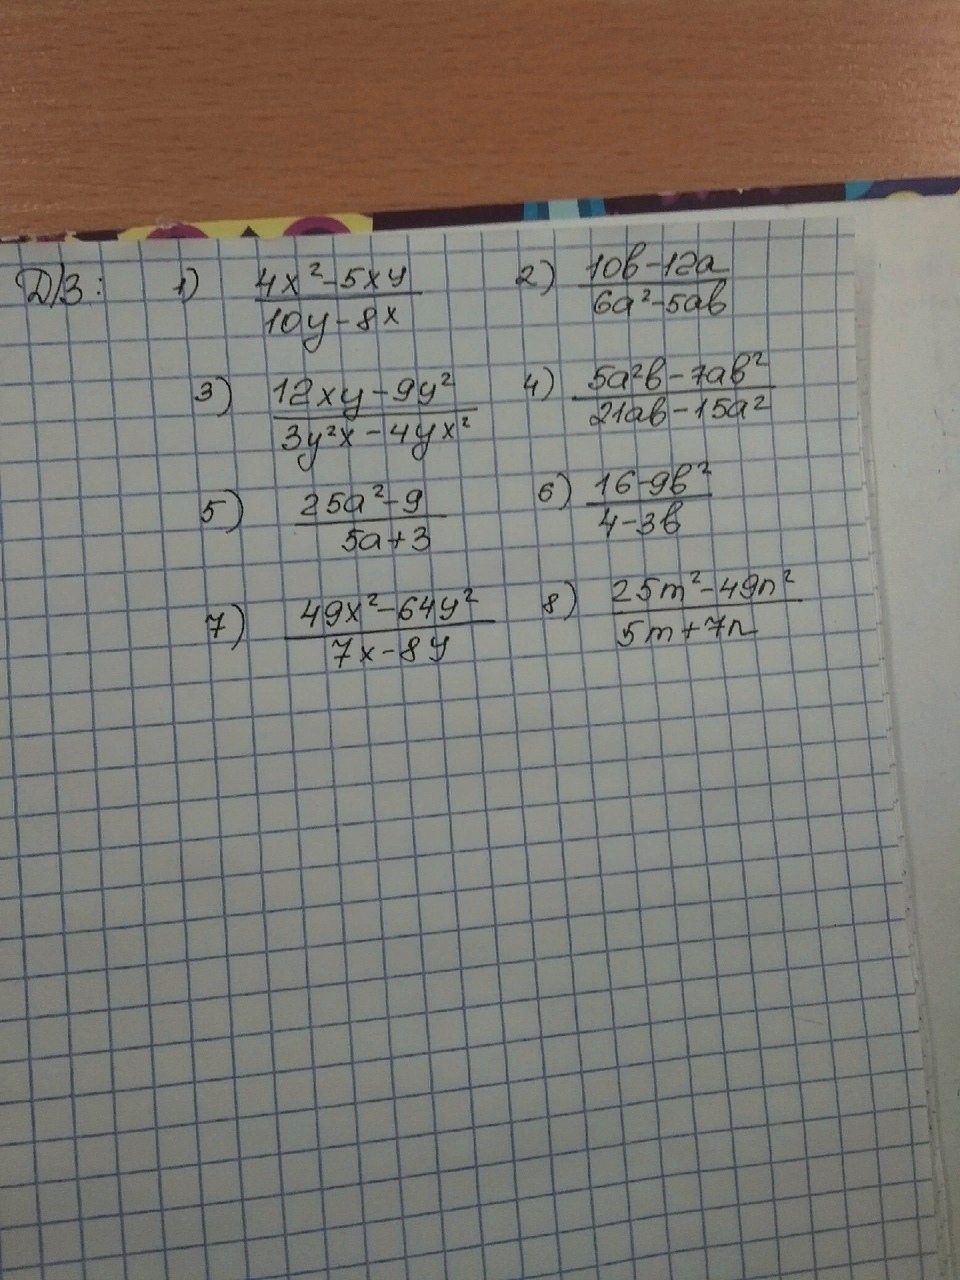 Д/З: 1) (4x²-5xy)/(10y-8x) 2) (10в-12a)/(6a²-5aв)
3) (12xy-9y²)/(3y²x-4yx²) 4) (5a²в-7aв²)/(21aв-15a²)
5) (25a²-9)/(5a+3) 6) (16-9в²)/(4-3в)
7) (49x²-64y²)/(7x-8y) 8) (25m²-49n²)/(5m+7n)